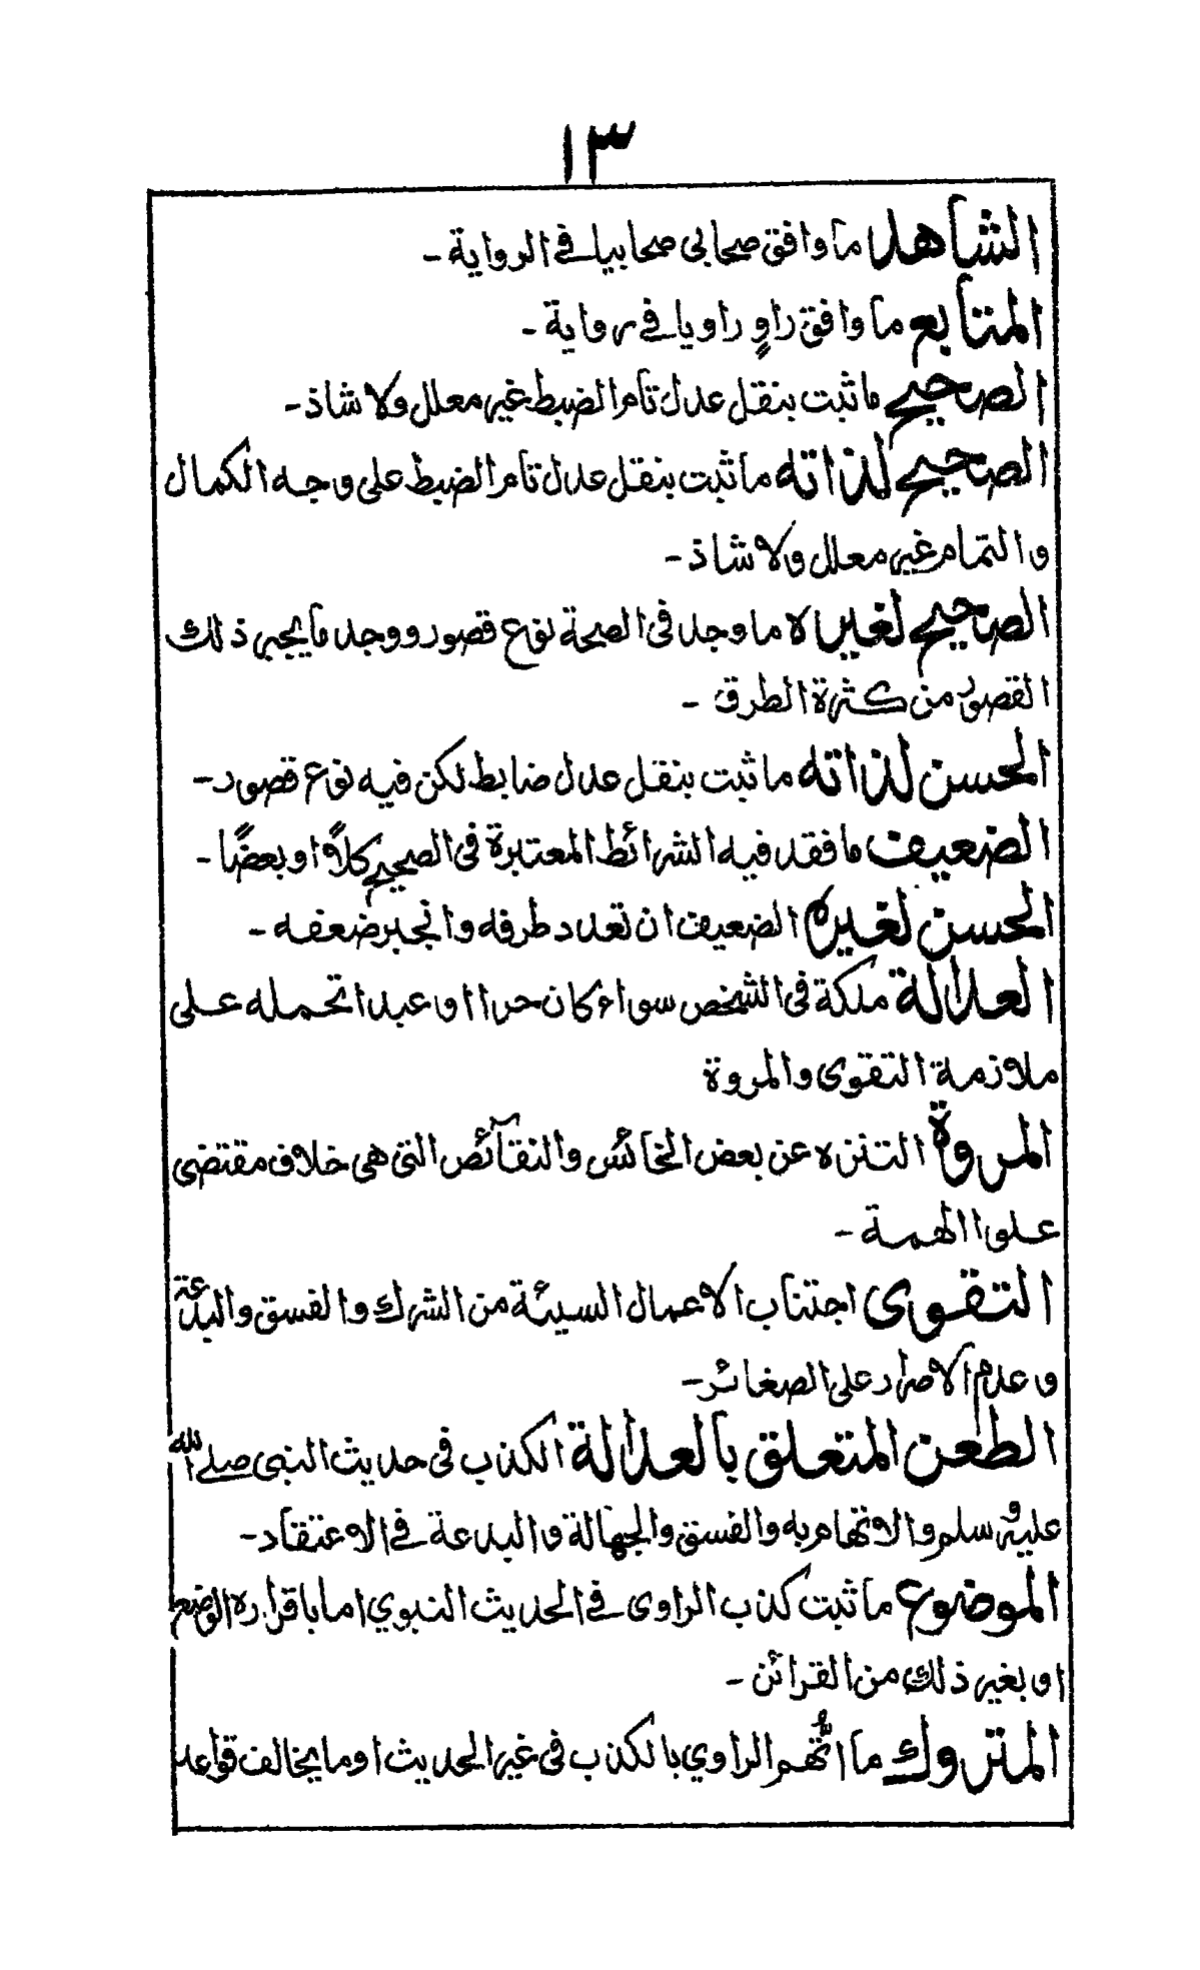 ١٣
الشاهد ما وافق صحابي صحابيا في الرواية -
المتابع ما وافق راوٍ راويا في رواية -
الصحيح ما ثبت بنقل عدل تام الضبط غير معلل ولا شاذ -
الصحيح لذاته ما ثبت بنقل عدل تام الضبط على وجه الكمال
والتمام غير معلل ولا شاذ -
الصحيح لغيره ما وجد في الصحة نوع قصور ووجد ما يجبر ذلك
القصور من كثرة الطرق -
الحسن لذاته ما ثبت بنقل عدل ضابط لكن فيه نوع قصور -
الضعيف ما فقد فيه الشرائط المعتبرة في الصحيح كلاً او بعضًا -
الحسن لغيره الضعيف ان تعدد طرقه وانجبر ضعفه -
العدالة ملكة في الشخص سواء كان حرا او عبدا تحمله على
ملازمة التقوى والمروة
المروة التنزه عن بعض الخائس والنقآئص التي هي خلاف مقتضى
علوا الهمة -
التقوى اجتناب الاعمال السيئة من الشرك والفسق والبدعة
وعدم الاصرار على الصغائر -
الطعن المتعلق بالعدالة الكذب في حديث النبي صلے الله
عليه وسلم والاتهام به والفسق والجهالة والبدعة في الاعتقاد -
الموضوع ما ثبت كذب الراوى في الحديث النبوي اما باقراره الوضع
او بغير ذلك من القرائن -
المتروك ما اتُّهم الراوي بالكذب في غير الحديث او ما يخالف قواعد